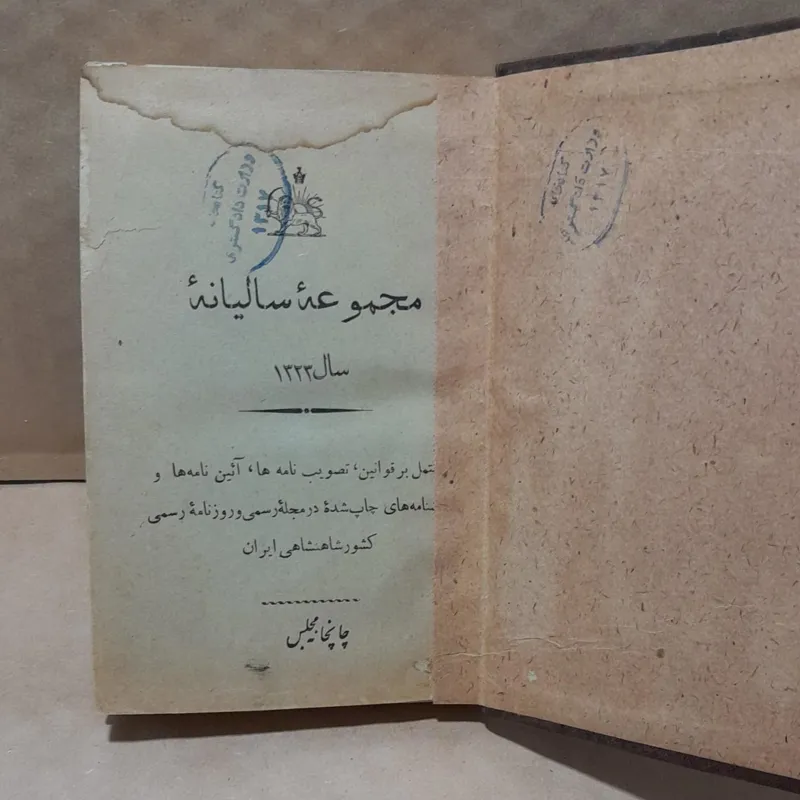 کتابخانه
وزارت دادگستری
۱۳۱۷
مجموعهٔ سالیانهٔ
سال ۱۳۲۳
بر قوانین، تصویب نامه ها، آئین نامه‌ها و
چاپ شدهٔ در مجلهٔ رسمی و روزنامهٔ رسمی
کشور شاهنشاهی ایران
چاپخانه مجلس
کتابخانه
وزارت دادگستری
۱۳۱۷